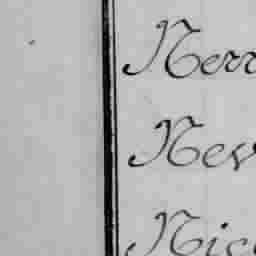 Nerr
Nev
Nic